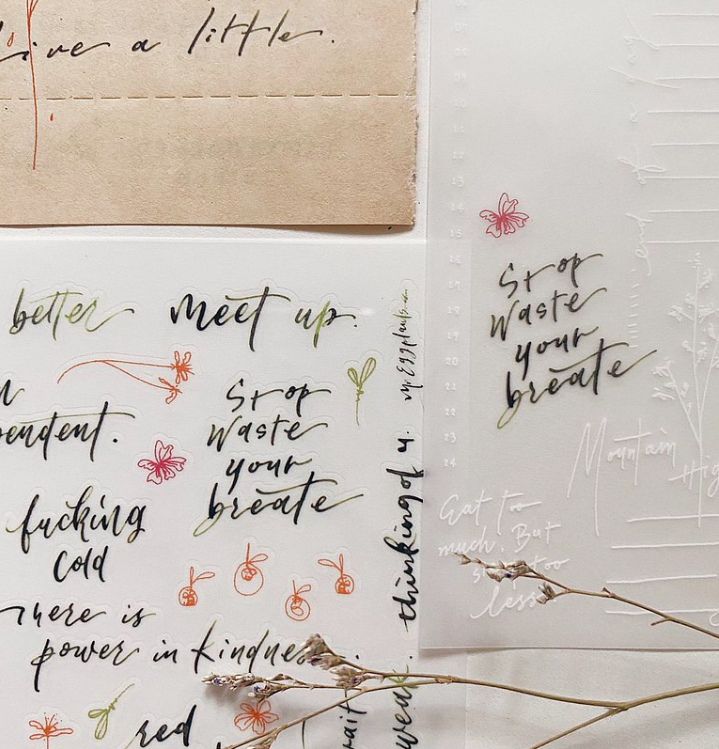 live a little.
better meet up.
pendent.
Stop
Waste
your
breate
fucking
cold
There is
power in kindness.
red
thinking of u.
weak.
wait
12
13
14
15
17
18
19
20
21
22
23
24
end
Stop
Waste
your
breate
Mountain
High
Eat too
much. But
too
less